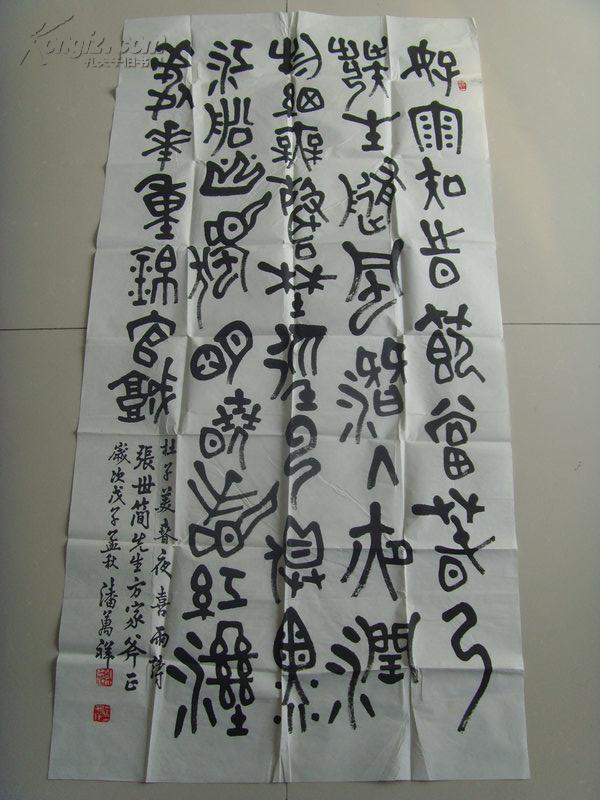 好雨知旹節當萅乃
發生隨風潛入夜潤
物細無聲野徑云俱黑
江船火獨明曉看紅濕
處花重錦官城
杜子美春夜喜雨詩
張世簡先生方家斧正
歲次戊子孟秋 潘萬祥
Kongfz.com
孔夫子旧书网